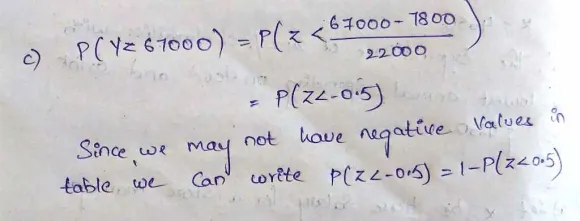 c) P(Y≤67000) = P(Z < 67000-7800 / 22000)
= P(Z<-0.5)
Since we may not have negative values in
table, we can write P(Z<-0.5) = 1-P(Z<0.5)